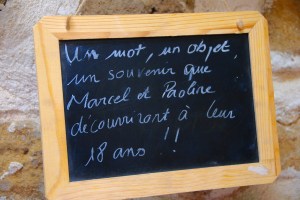 Un mot, un objet,
un souvenir que
Marcel et Pauline
découvriront à leur
18 ans !!